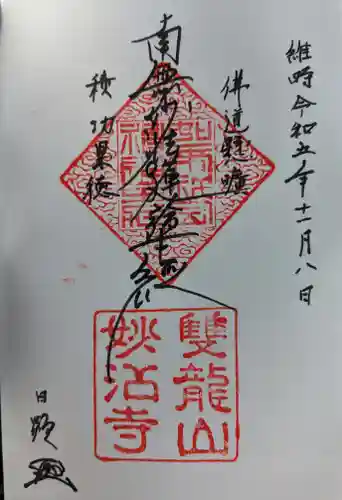 維時令和五年十一月八日
佛道
南無妙法蓮華経
積功累徳
雙龍山
妙法寺
日顕